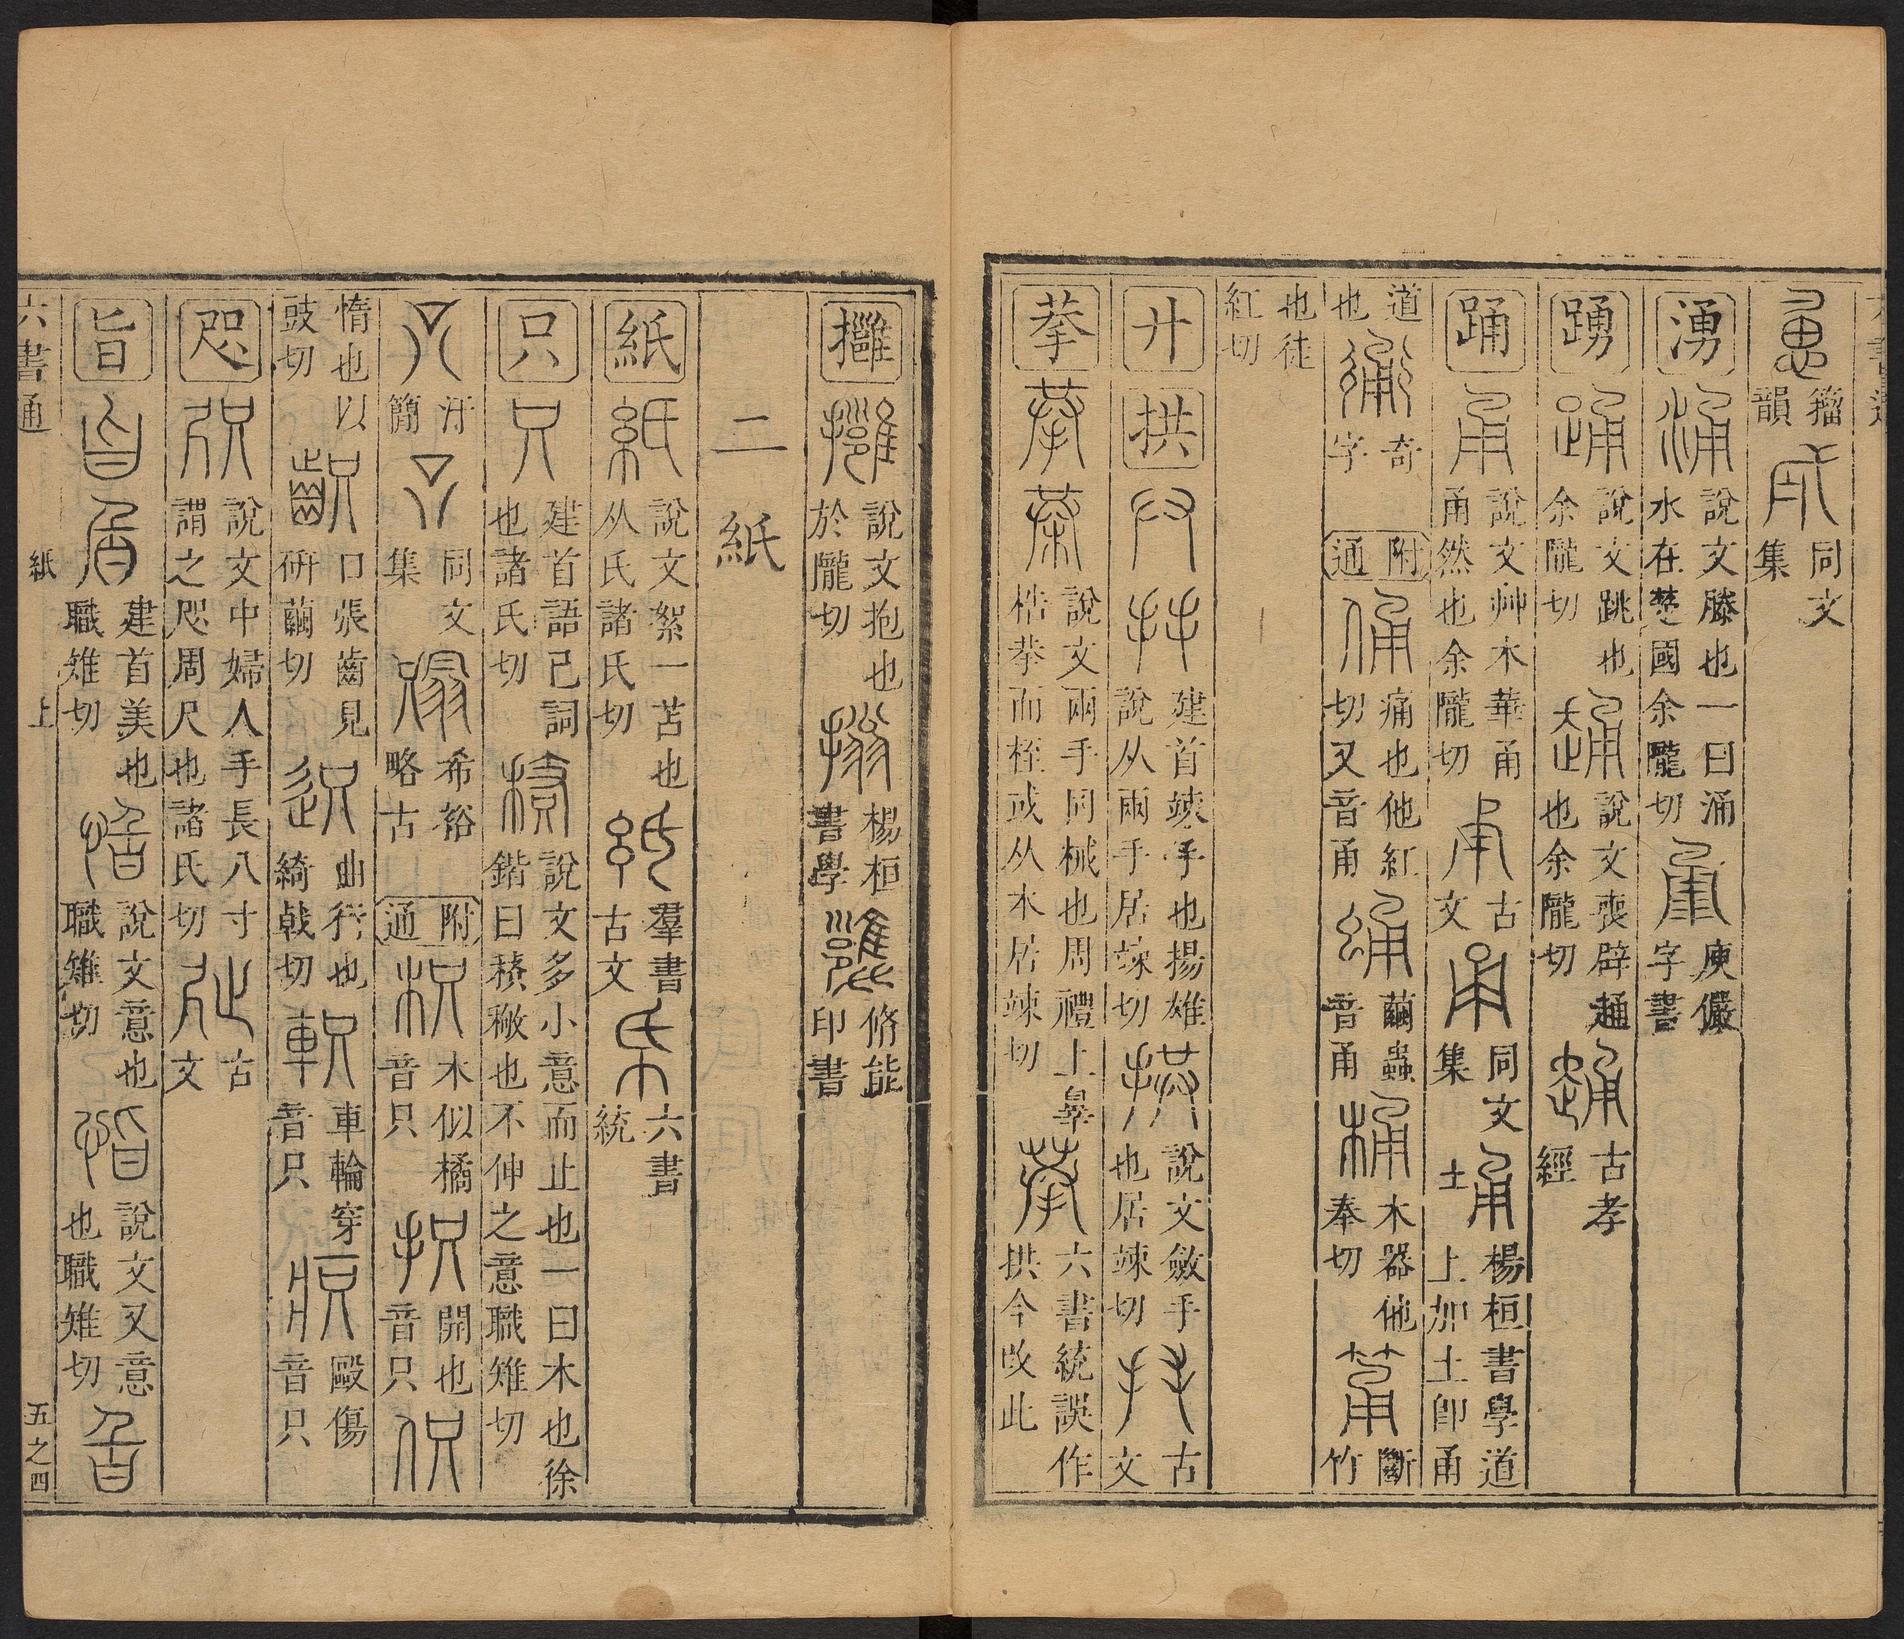 恿 籀韻 同文集
湧 涌 說文滕也一曰涌水在楚國余隴切 庾儼字書
踴 踊 說文跳也余隴切 說文喪辟踊也余隴切 古孝經
踊 甬 說文艸木華甬甬然也余隴切 古文 同文集 埇 楊桓書學道上加土卽甬
道也 奇字 附通 俑 痛也他紅切又音甬 繭蟲音甬 桶 木器他奉切 筩 斷竹
也徒紅切
廾 拱 建首竦手也揚雄說从兩手居竦切 拱 說文斂手也居竦切 古文
拲 拲 說文兩手同械也周禮上辠梏拲而桎或从木居竦切 六書統誤作拱今改此
攤 說文抱也於隴切 楊桓書學 脩能印書
二紙
紙 紙 說文絮一苫也从氏諸氏切 羣書古文 六書統
只 只 建首語已詞也諸氏切 說文多小意而止也一曰木也徐鍇曰𥡴䅩也不伸之意職雉切
汗簡 同文集 希裕略古 附通 枳 木似橘音只 抧 開也音只
惰也以豉切 口張齒見硏繭切 曲行也綺戟切 軹 車輪穿音只 毆傷音只
咫 說文中婦人手長八寸謂之咫周尺也諸氏切 古文
旨 旨 建首美也職雉切 恉 說文意也職雉切 說文又意也職雉切
六書通 紙 上 五之四